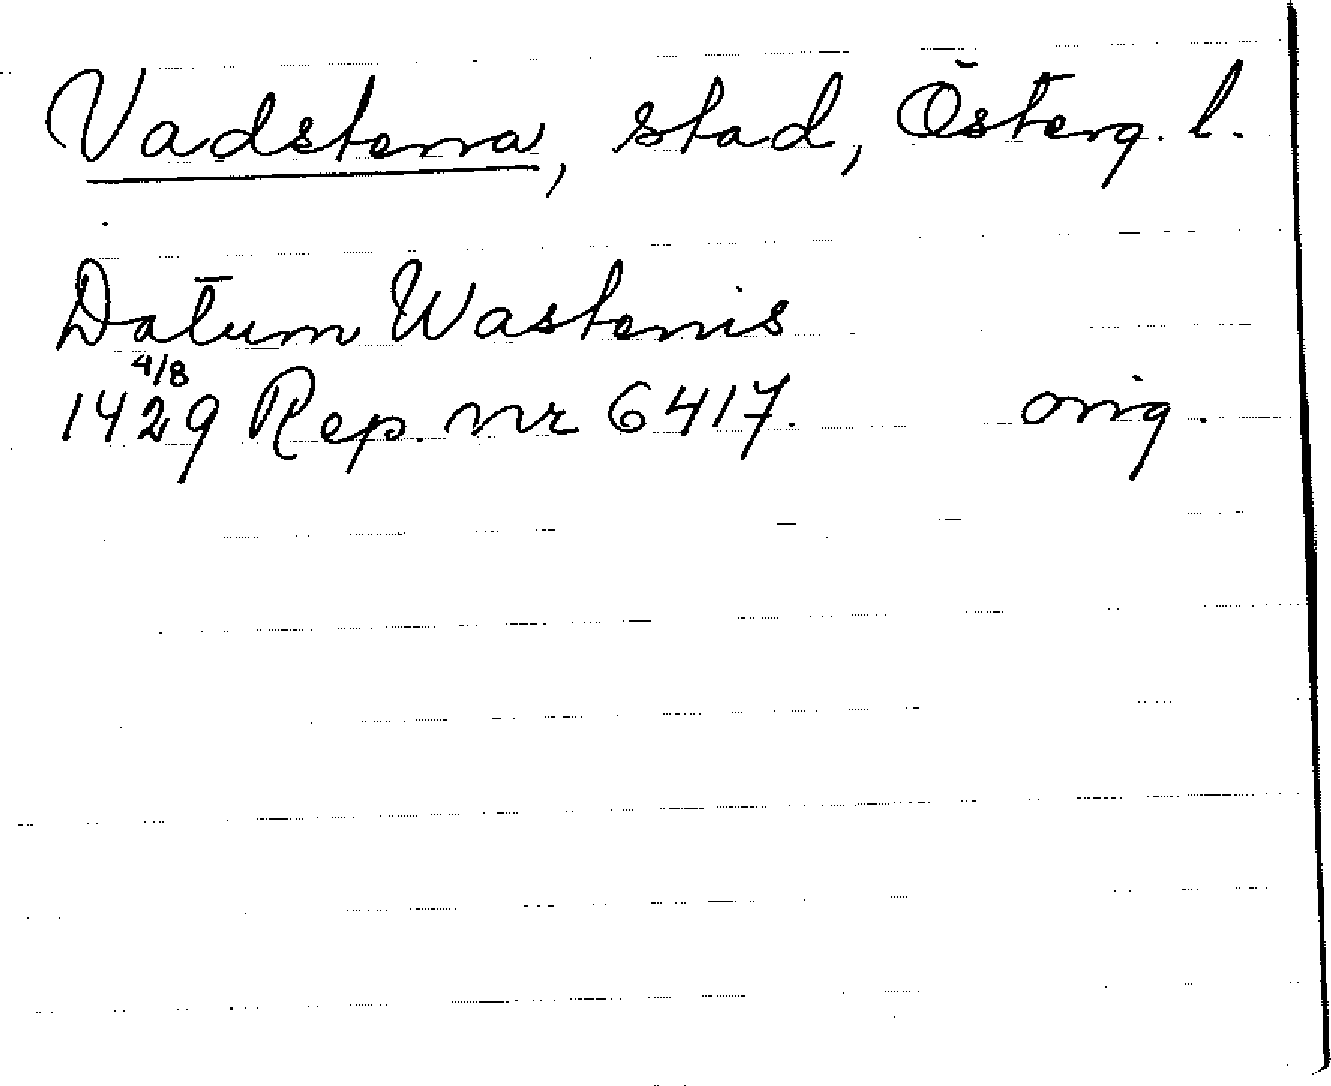 Vadstena, stad, Österg. l.
Datum Wastenis
4/8
1429 Rep. nr 6417. orig.